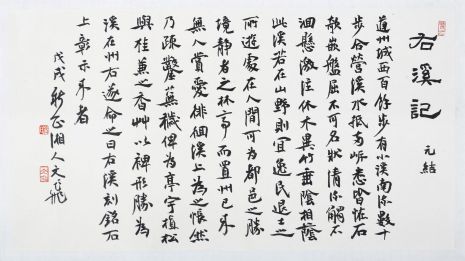 右溪記
元結
道州城西百餘步有小溪南流數十
步合營溪水抵兩岸悉皆怪石
欹嵌盤屈不可名狀清流觸石
洄懸激注休木異竹垂陰相蔭
此溪若在山野則宜逸民退士之
所遊處在人間可為都邑之勝
境靜者之林亭而置州已來
無人賞愛徘徊溪上為之悵然
乃疏鑿蕪穢俾為亭宇植松
與桂兼之香艸以裨形勝為
溪在州右遂命之曰右溪刻銘石
上彰示來者
戊戌秋 湘人